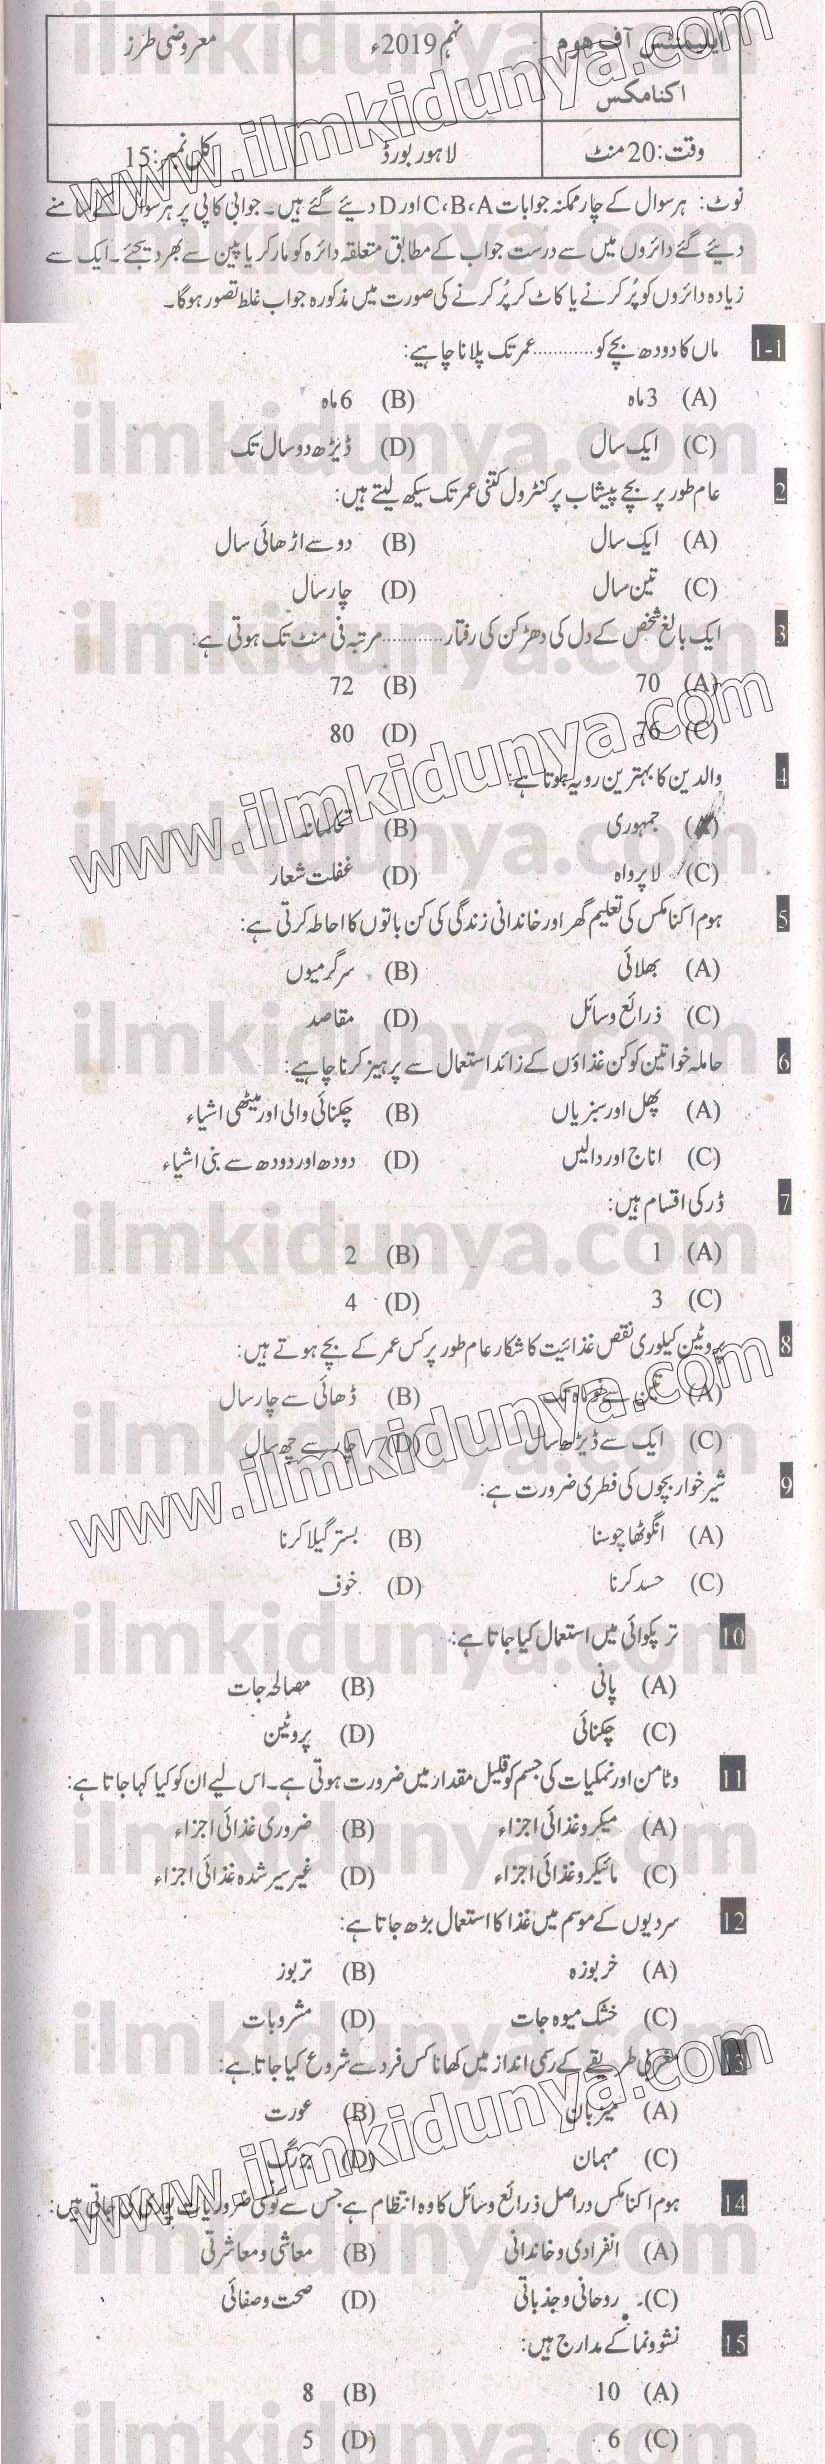 ایلیمنٹس آف ہوم اکنامکس
نہم 2019ء
معروضی طرز
وقت: 20 منٹ
لاہور بورڈ
کل نمبر: 15
نوٹ: ہر سوال کے چار ممکنہ جوابات C، B، A اور D دیئے گئے ہیں۔ جوابی کاپی پر ہر سوال کے سامنے
دیئے گئے دائروں میں سے درست جواب کے مطابق متعلقہ دائرہ کو مارکر یا پین سے بھر دیجئے۔ ایک سے
زیادہ دائروں کو پُر کرنے یا کاٹ کر پُر کرنے کی صورت میں مذکورہ جواب غلط تصور ہوگا۔
1-1 ماں کا دودھ بچے کو ............ عمر تک پلانا چاہیے:
(A) 3 ماہ (B) 6 ماہ
(C) ایک سال (D) ڈیڑھ دو سال تک
2 عام طور پر بچے پیشاب پر کنٹرول کتنی عمر تک سیکھ لیتے ہیں:
(A) ایک سال (B) دو سے اڑھائی سال
(C) تین سال (D) چار سال
3 ایک بالغ شخص کے دل کی دھڑکن کی رفتار ............ مرتبہ فی منٹ تک ہوتی ہے:
(A) 70 (B) 72
(C) 76 (D) 80
4 والدین کا بہترین رویہ ہوتا ہے:
(A) جمہوری (B) تحکمانہ
(C) لاپرواہ (D) غفلت شعار
5 ہوم اکنامکس کی تعلیم گھر اور خاندانی زندگی کی کن باتوں کا احاطہ کرتی ہے:
(A) بھلائی (B) سرگرمیوں
(C) ذرائع وسائل (D) مقاصد
6 حاملہ خواتین کو کن غذاؤں کے زائد استعمال سے پرہیز کرنا چاہیے:
(A) پھل اور سبزیاں (B) چکنائی والی اور میٹھی اشیاء
(C) اناج اور دالیں (D) دودھ اور دودھ سے بنی اشیاء
7 ڈر کی اقسام ہیں:
(A) 1 (B) 2
(C) 3 (D) 4
8 پروٹین کیلوری نقص غذائیت کا شکار عام طور پر کس عمر کے بچے ہوتے ہیں:
(A) تین سے نو ماہ تک (B) ڈھائی سے چار سال
(C) ایک سے ڈیڑھ سال (D) چار سے چھ سال
9 شیر خوار بچوں کی فطری ضرورت ہے:
(A) انگوٹھا چوسنا (B) بستر گیلا کرنا
(C) حسد کرنا (D) خوف
10 تر پکوائی میں استعمال کیا جاتا ہے:
(A) پانی (B) مصالحہ جات
(C) چکنائی (D) پروٹین
11 وٹامن اور نمکیات کی جسم کو قلیل مقدار میں ضرورت ہوتی ہے۔ اس لیے ان کو کیا کہا جاتا ہے:
(A) میکرو غذائی اجزاء (B) ضروری غذائی اجزاء
(C) مائیکرو غذائی اجزاء (D) غیر سیر شدہ غذائی اجزاء
12 سردیوں کے موسم میں غذا کا استعمال بڑھ جاتا ہے:
(A) خربوزہ (B) تربوز
(C) خشک میوہ جات (D) مشروبات
13 مغربی طریقے کے رسمی انداز میں کھانا کس فرد سے شروع کیا جاتا ہے:
(A) میزبان (B) عورت
(C) مہمان (D) بزرگ
14 ہوم اکنامکس دراصل ذرائع وسائل کا وہ انتظام ہے جس سے کونسی ضروریات پوری کی جاتی ہیں:
(A) انفرادی و خاندانی (B) معاشی و معاشرتی
(C) روحانی و جذباتی (D) صحت و صفائی
15 نشوونما کے مدارج ہیں:
(A) 10 (B) 8
(C) 6 (D) 5